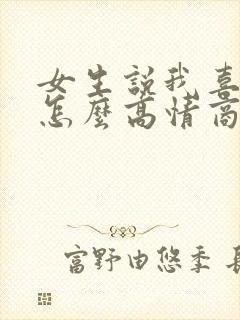 女生説我喜
怎麼高情商
富野由悠季